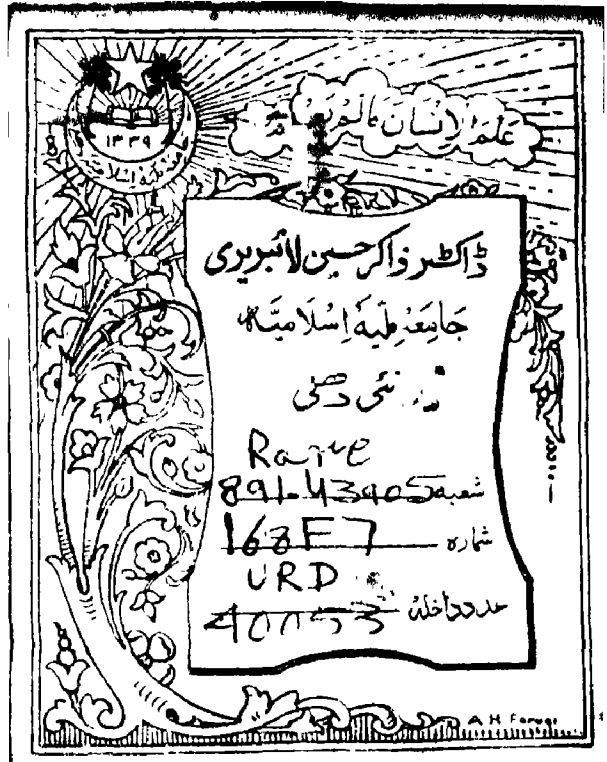 عَلَّمَ الْاِنْسَانَ مَا لَمْ يَعْلَمْ
۱۳۳۹
جامعہ ملیہ اسلامیہ
ڈاکٹر ذاکر حسین لائبریری
جَامِعَہ مِلّیہ اِسْلَامِیَہ
نئی دھلی
Rare
شعبہ 891.43905
شمارہ 168F7
URD
عدد داخلہ 40053
A H Faruqi